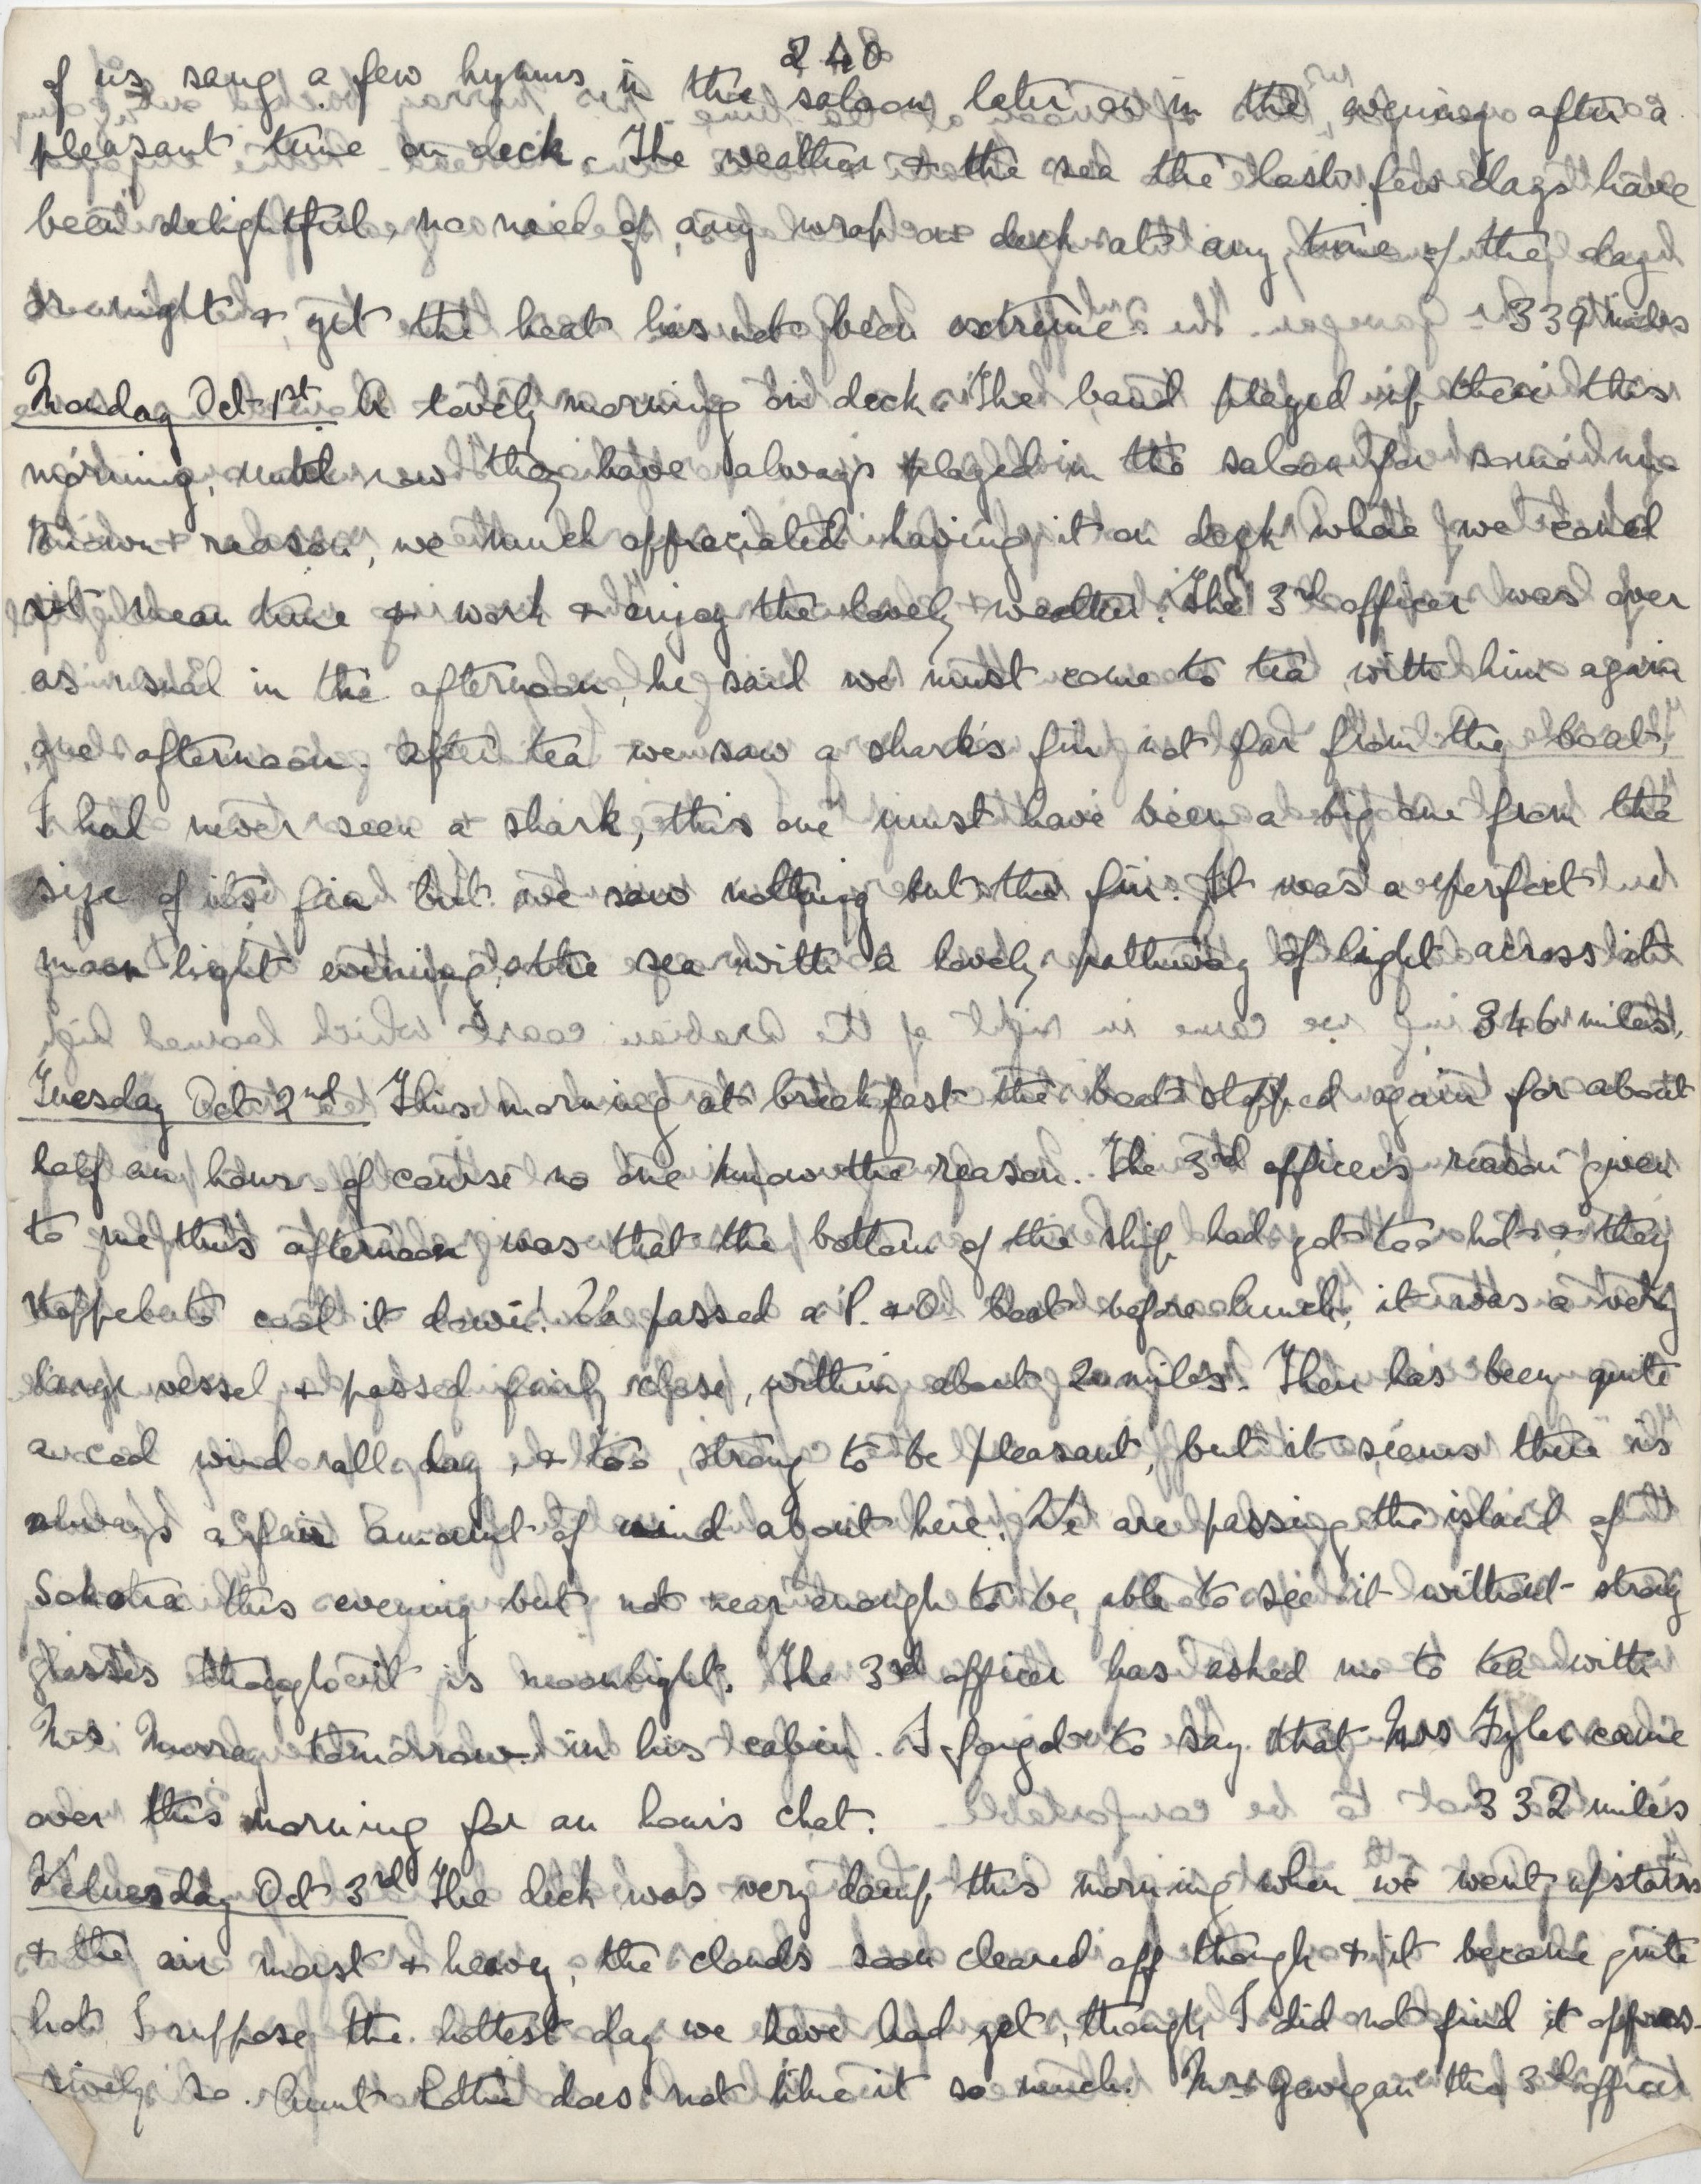 240
of us sang a few hymns in the saloon later on in the evening after a
pleasant time on deck. The weather & the sea the last few days have
been delightful, no need of any wrap on deck at any time of the day
or night & yet the heat has not been extreme. 339 miles
Monday Oct 1st. A lovely morning on deck. The band played up there this
morning, until now they have always played in the saloon for some un-
known reason, we much appreciated having it on deck where we could
sit mean time & work & enjoy the lovely weather. The 3rd officer was over
as usual in the afternoon, he said we must come to tea with him again
one afternoon. After tea we saw a shark's fin not far from the boat,
I had never seen a shark, this one must have been a big one from the
size of its fin but we saw nothing but the fin. It was a perfect
moon light evening, & the sea with a lovely pathway of light across it
346 miles.
Tuesday Oct 2nd This morning at breakfast the boat stopped again for about
half an hour - of course no one knew the reason. The 3rd officer's reason given
to me this afternoon was that the bottom of the ship had got too hot & they
stopped to cool it down! We passed a P. & O. boat before lunch, it was a very
large vessel & passed fairly close, within about 2 miles. There has been quite
a cool wind all day, & too strong to be pleasant, but it seems there is
always a fair amount of wind about here. We are passing the island of
Sokotra this evening but not near enough to be able to see it without strong
glasses though it is moonlight. The 3rd officer has asked me to tea with
Mrs Murray tomorrow in his cabin. I forgot to say that Mrs Tyler came
over this morning for an hour's chat. 332 miles
Wednesday Oct 3rd The deck was very damp this morning when we went upstairs
& the air moist & heavy, the clouds soon cleared off though & it became quite
hot I suppose the hottest day we have had yet, though I did not find it oppres-
sively so. Aunt Lottie does not like it so much. Mr Gavegan the 3rd officer